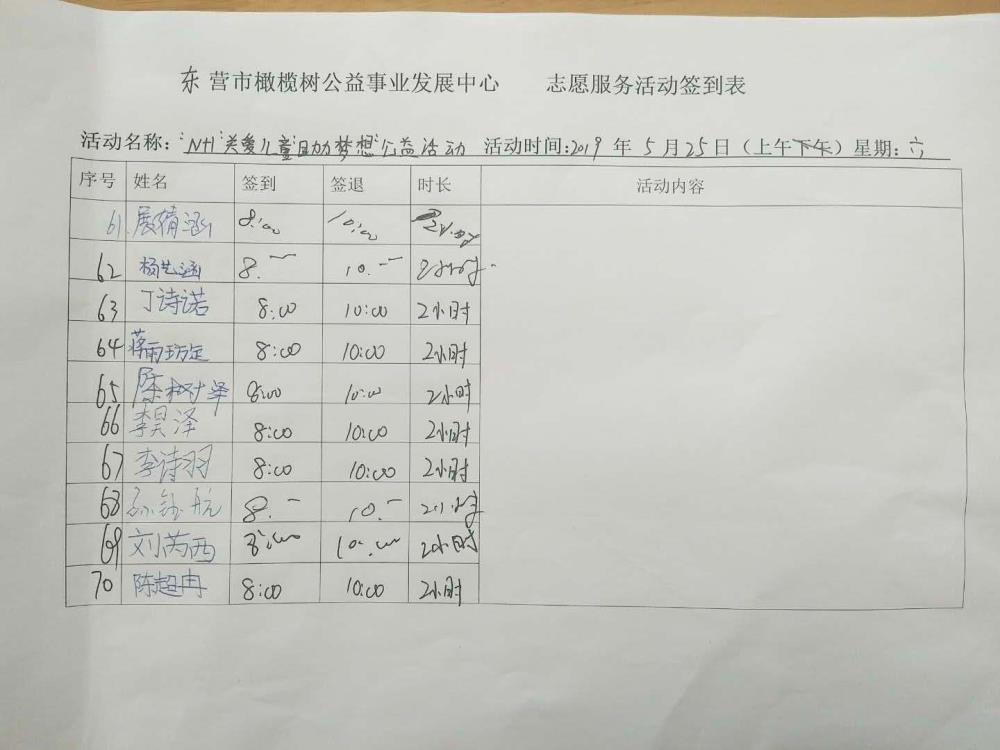 东营市橄榄树公益事业发展中心 志愿服务活动签到表
活动名称:"NH"关爱儿童"助力梦想"公益活动 活动时间:2019年5月25日(上午下午)星期:六
序号 姓名 签到 签退 时长 活动内容
61. 展倩涵 8:00 10:00 2小时
62 杨艺涵 8.一 10.一 2小时
63 丁诗诺 8:00 10:00 2小时
64 蒋雨 8:00 10:00 2小时
65 陈树泽 8:00 10:00 2小时
66 李昊泽 8:00 10:00 2小时
67 李诗羽 8:00 10:00 2小时
68 孙钰航 8.一 10.一 2小时
69 刘芮西 8:00 10:00 2小时
70 陈超冉 8:00 10:00 2小时